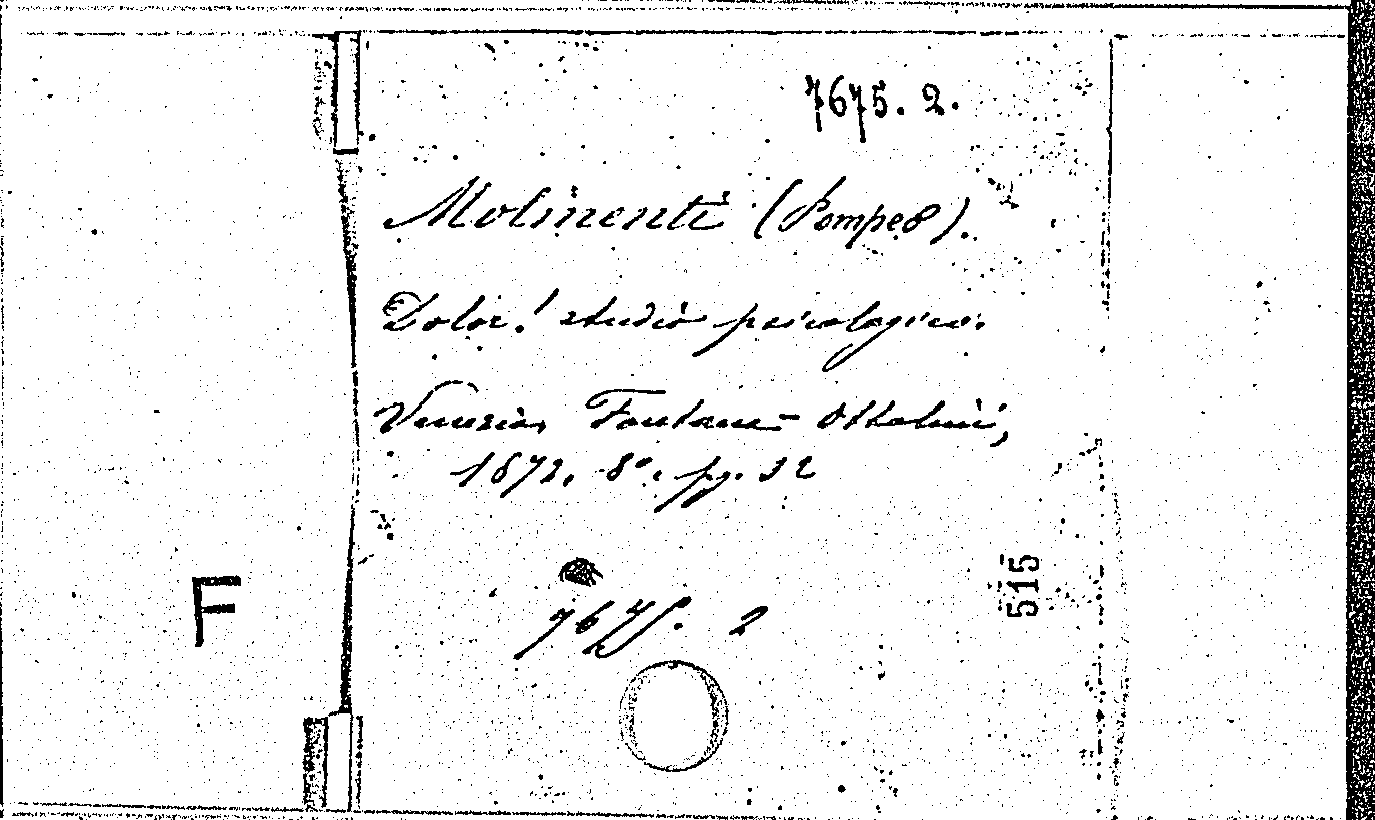 7675. 2.
Molinenti (Pompeo).
Dolor! studio psicologico.
Venezia, Fontana-Ottolini,
1872. 8°. pg. 32
F
515
7675. 2